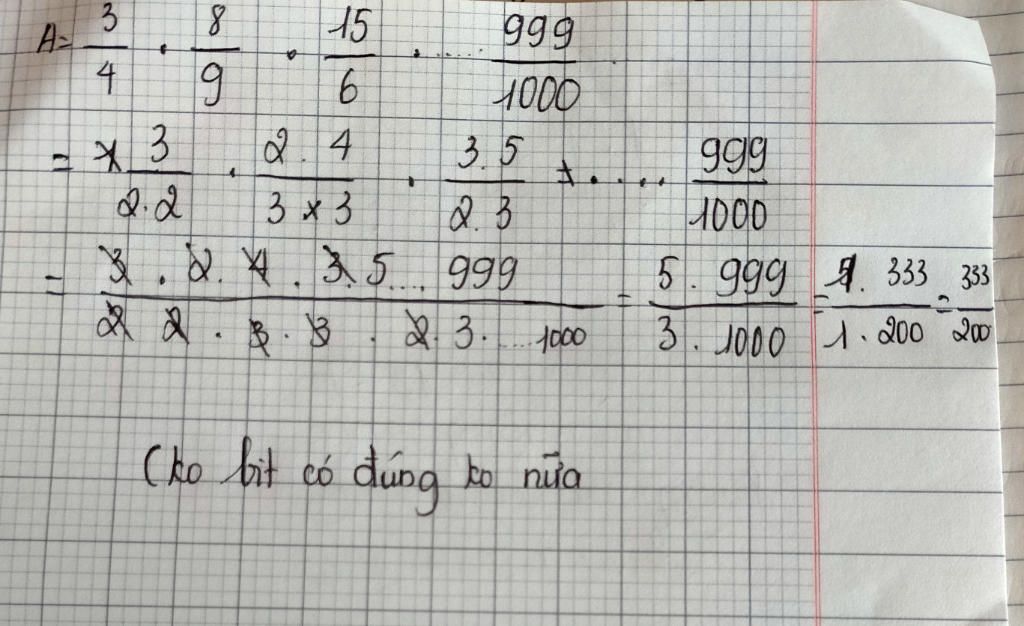 A= 3/4 . 8/9 . 15/6 . ..... 999/1000
= x 3/2.2 . 2.4/3x3 . 3.5/2.3 + . ... 999/1000
= 3.2.4.3.5....999/2 2.3.3.2.3.....1000 = 5.999/3.1000 = 1.333/1.200 = 333/200
(ko bit có đúng ko nữa